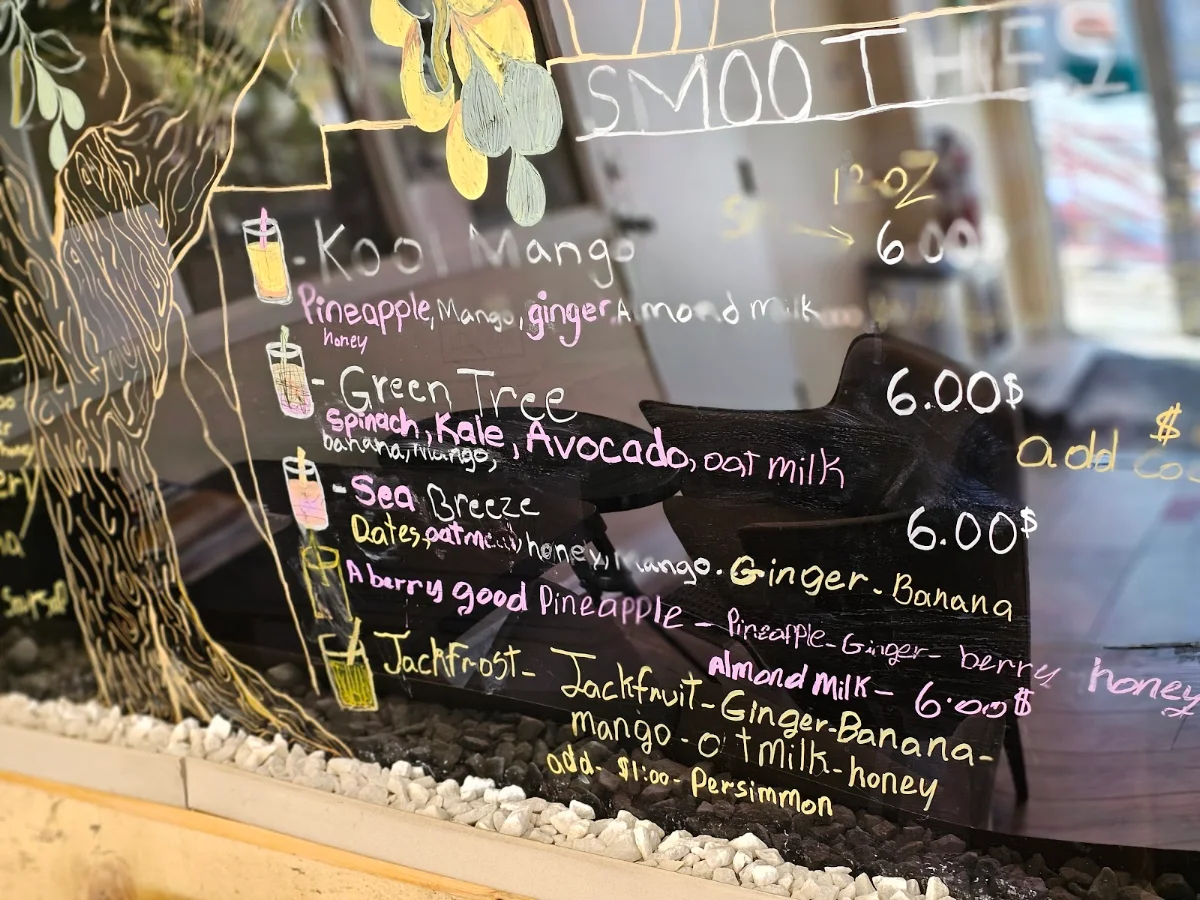 SMOOTHIES
12.OZ
- Kool Mango 6.00
Pineapple, Mango, ginger, Almond Milk
honey
- Green Tree 6.00$
Spinach, Kale, Avocado, oat milk
banana, Mango,
add $
- Sea Breeze 6.00$
Dates, oatmilk, honey, Mango. Ginger - Banana
A berry good Pineapple - Pineapple - Ginger - berry honey
Almond Milk - 6.00$
Jackfrost - Jackfruit - Ginger - Banana -
mango - oat Milk - honey
add - $1.00 - Persimmon